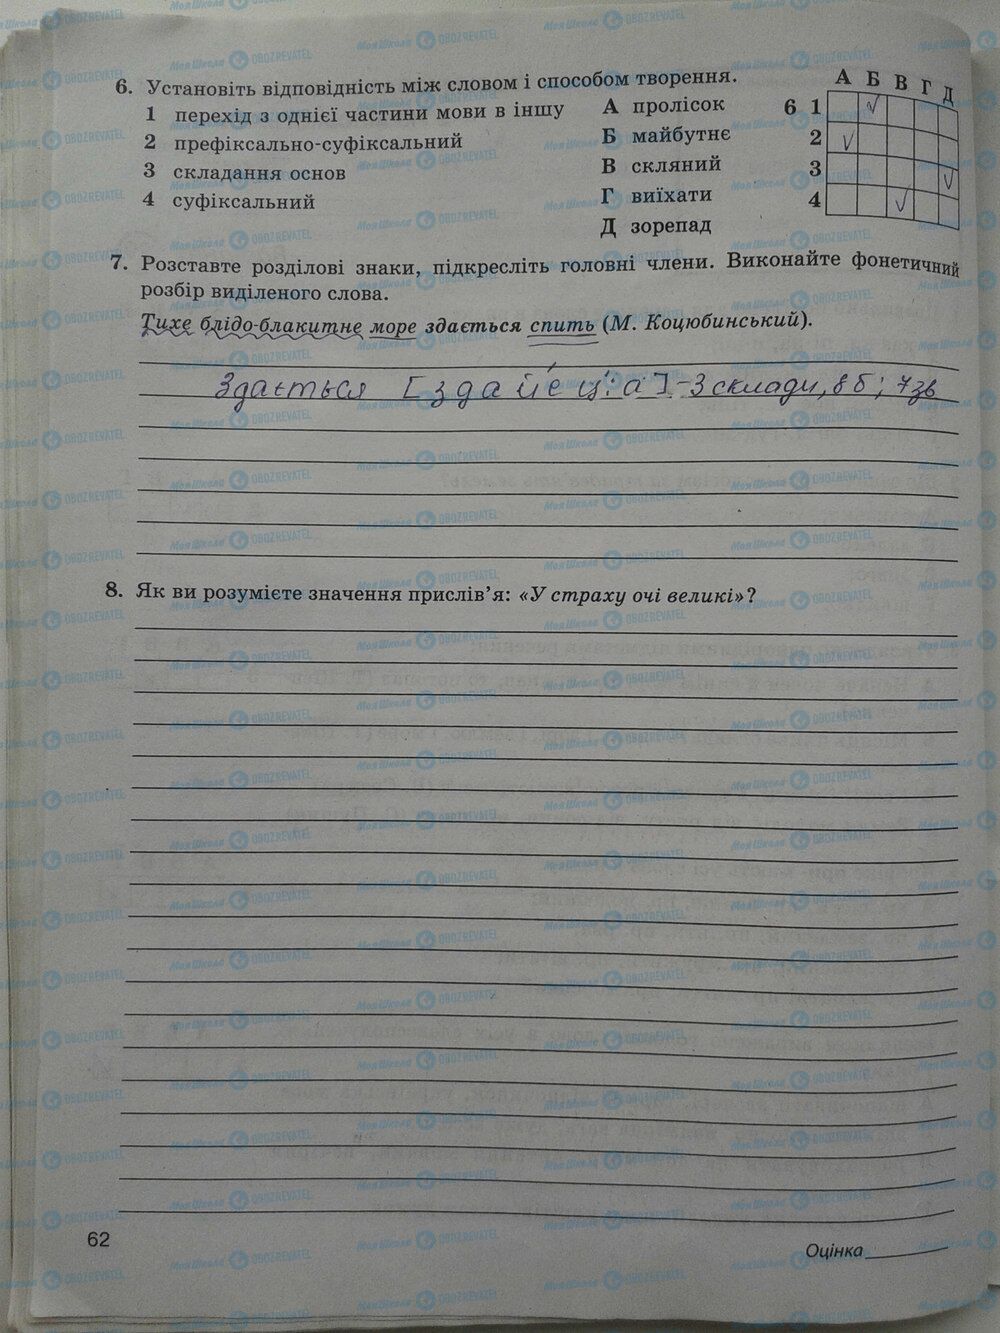 6. Установіть відповідність між словом і способом творення.
1 перехід з однієї частини мови в іншу
2 префіксально-суфіксальний
3 складання основ
4 суфіксальний
А пролісок
Б майбутнє
В скляний
Г виїхати
Д зорепад
А Б В Г Д
6 1
2
3
4
7. Розставте розділові знаки, підкресліть головні члени. Виконайте фонетичний
розбір виділеного слова.
Тихе блідо-блакитне море здається спить (М. Коцюбинський).
Здається [здайец':а] - 3 склади, 8 б; 7 зв
8. Як ви розумієте значення прислів'я: «У страху очі великі»?
62
Оцінка
МояШкола OBOZREVATEL